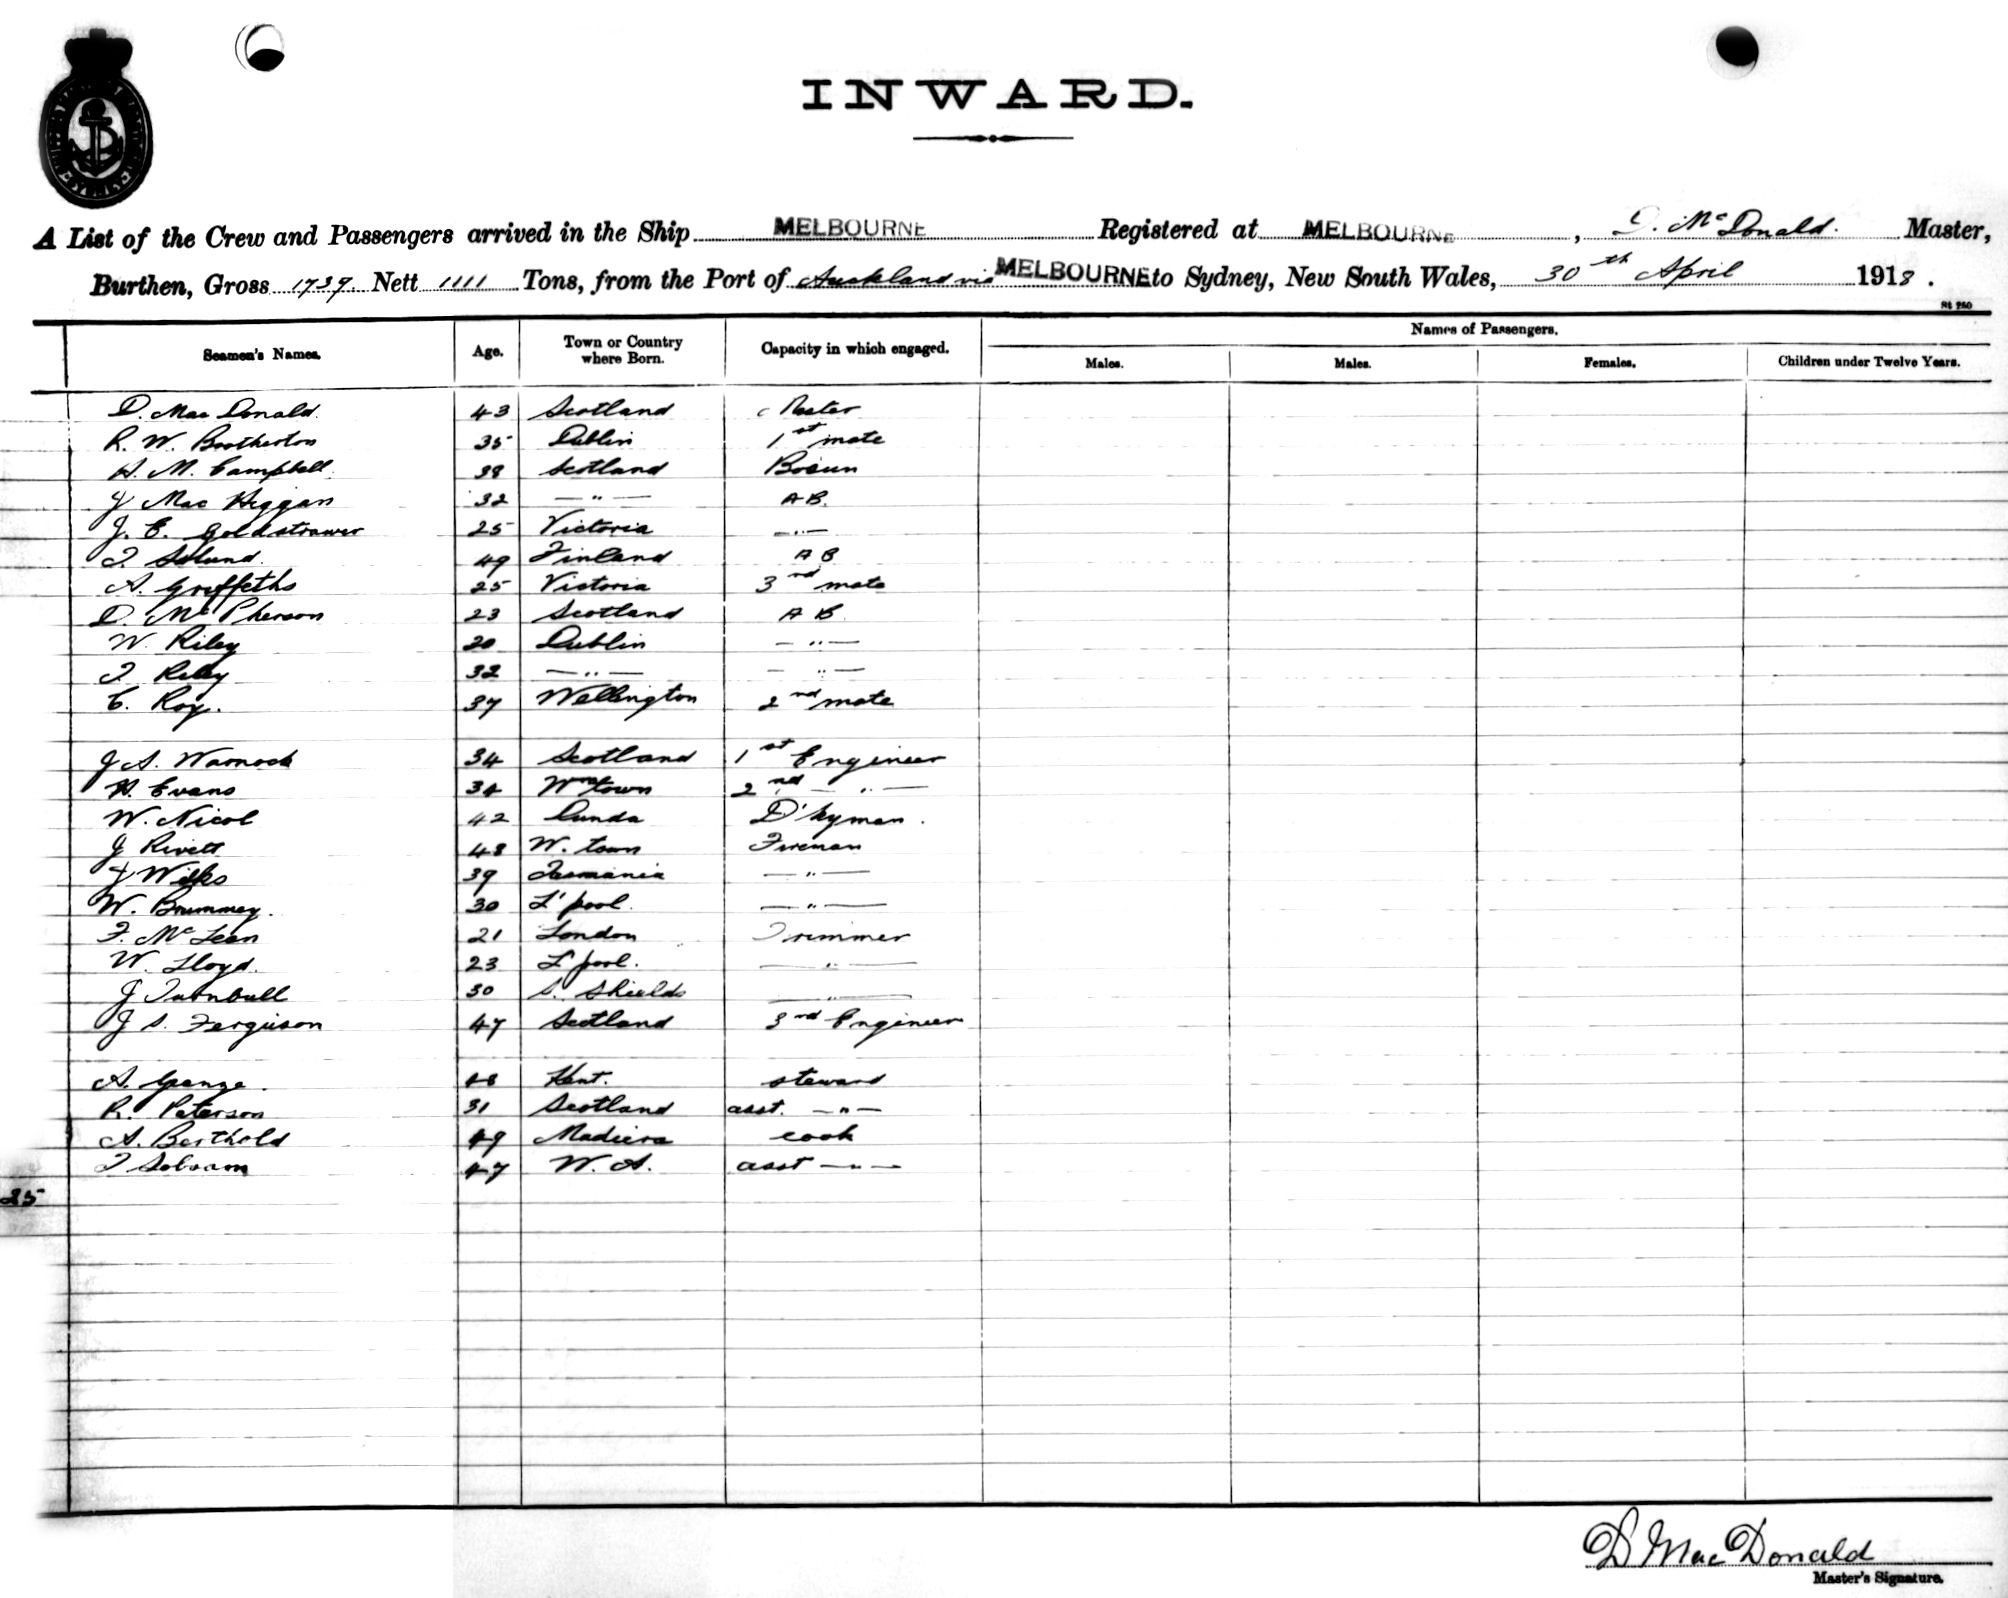 INWARD.
A List of the Crew and Passengers arrived in the Ship MELBOURNE Registered at MELBOURNE, D. McDonald. Master,
Burthen, Gross 1739 Nett 1111 Tons, from the Port of Auckland via MELBOURNE to Sydney, New South Wales, 30th April 1918.
St 250
Names of Passengers.
Seamen's Names. Age. Town or Country where Born. Capacity in which engaged. Males. Males. Females. Children under Twelve Years.
D. Mac Donald. 43 Scotland Master
R. W. Brotherton 35 Dublin 1st mate
H. M. Campbell. 38 Scotland Bosun
J Mac Higgan 32 — " — AB.
J. C. Goldstrawer 25 Victoria — " —
49 Finland AB
A. Griffeths 25 Victoria 3rd mate
D. McPherson 23 Scotland AB
W. Riley 20 Dublin — " —
T Riley 32 — " — — " —
C. Roy. 37 Wellington 2nd mate
J A. Warnock 34 Scotland 1st Engineer
H. Evans 34 Wmtown 2nd — " —
W. Nicol 42 D'kyman.
J Rivett 48 W. town Fireman
J Wilks 39 Tasmania — " —
W. Brummey. 30 L'pool. — " —
F. McLean 21 London Trimmer
W. Lloyd. 23 L'pool. — " —
J Turnbull 30 S. Shields — " —
J S. Ferguson 47 Scotland 3rd Engineer
A. Grange. 48 Kent. steward
R. Paterson 31 Scotland asst. — " —
A. Berthold 49 Madiera cook
T 47 W. A. asst — " —
25
D MacDonald
Master's Signature.